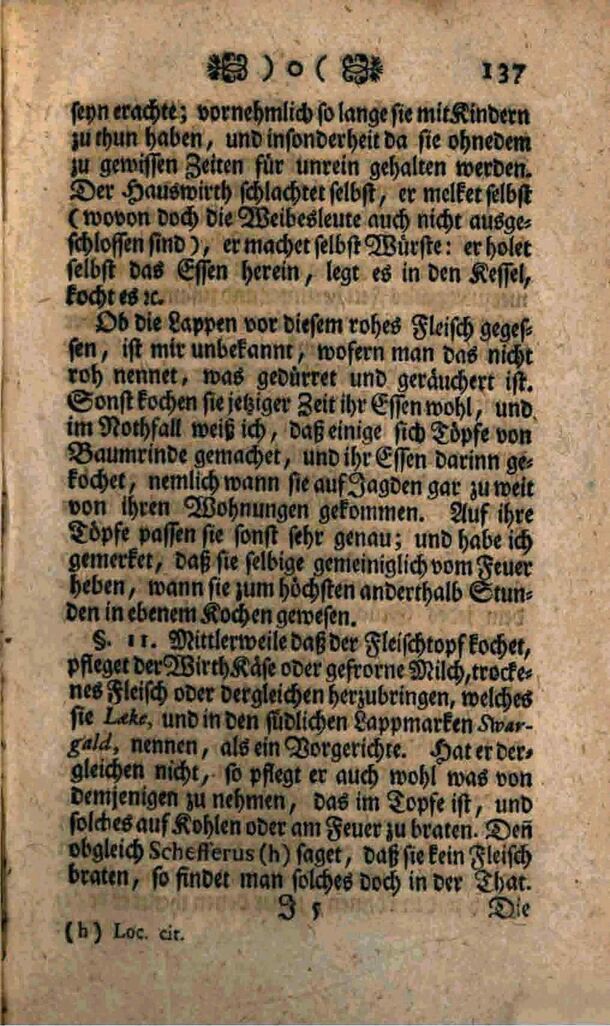 ) o ( 137
seyn erachte; vornehmlich so lange sie mit Kindern
zu thun haben, und insonderheit da sie ohnedem
zu gewissen Zeiten für unrein gehalten werden.
Der Hauswirth schlachtet selbst, er melket selbst
(wovon doch die Weibesleute auch nicht ausge-
schlossen sind), er machet selbst Würste: er holet
selbst das Essen herein, legt es in den Kessel,
kocht es ꝛc.
Ob die Lappen vor diesem rohes Fleisch geges-
sen, ist mir unbekannt, wofern man das nicht
roh nennet, was gedürret und geräuchert ist.
Sonst kochen sie jetziger Zeit ihr Essen wohl, und
im Nothfall weiß ich, daß einige sich Töpfe von
Baumrinde gemachet, und ihr Essen darinn ge-
kochet, nemlich wann sie auf Jagden gar zu weit
von ihren Wohnungen gekommen. Auf ihre
Töpfe passen sie sonst sehr genau; und habe ich
gemerket, daß sie selbige gemeiniglich vom Feuer
heben, wann sie zum höchsten anderthalb Stun-
den in ebenem Kochen gewesen.
§. 11. Mittlerweile daß der Fleischtopf kochet,
pfleget der Wirth Käse oder gefrorne Milch, trocke-
nes Fleisch oder dergleichen herzubringen, welches
sie Læke, und in den südlichen Lappmarken Swar-
gald, nennen, als ein Vorgerichte. Hat er der-
gleichen nicht, so pflegt er auch wohl was von
demjenigen zu nehmen, das im Topfe ist, und
solches auf Kohlen oder am Feuer zu braten. Deñ
obgleich Schefferus (h) saget, daß sie kein Fleisch
braten, so findet man solches doch in der That.
J 5 Die
(h) Loc. cit.